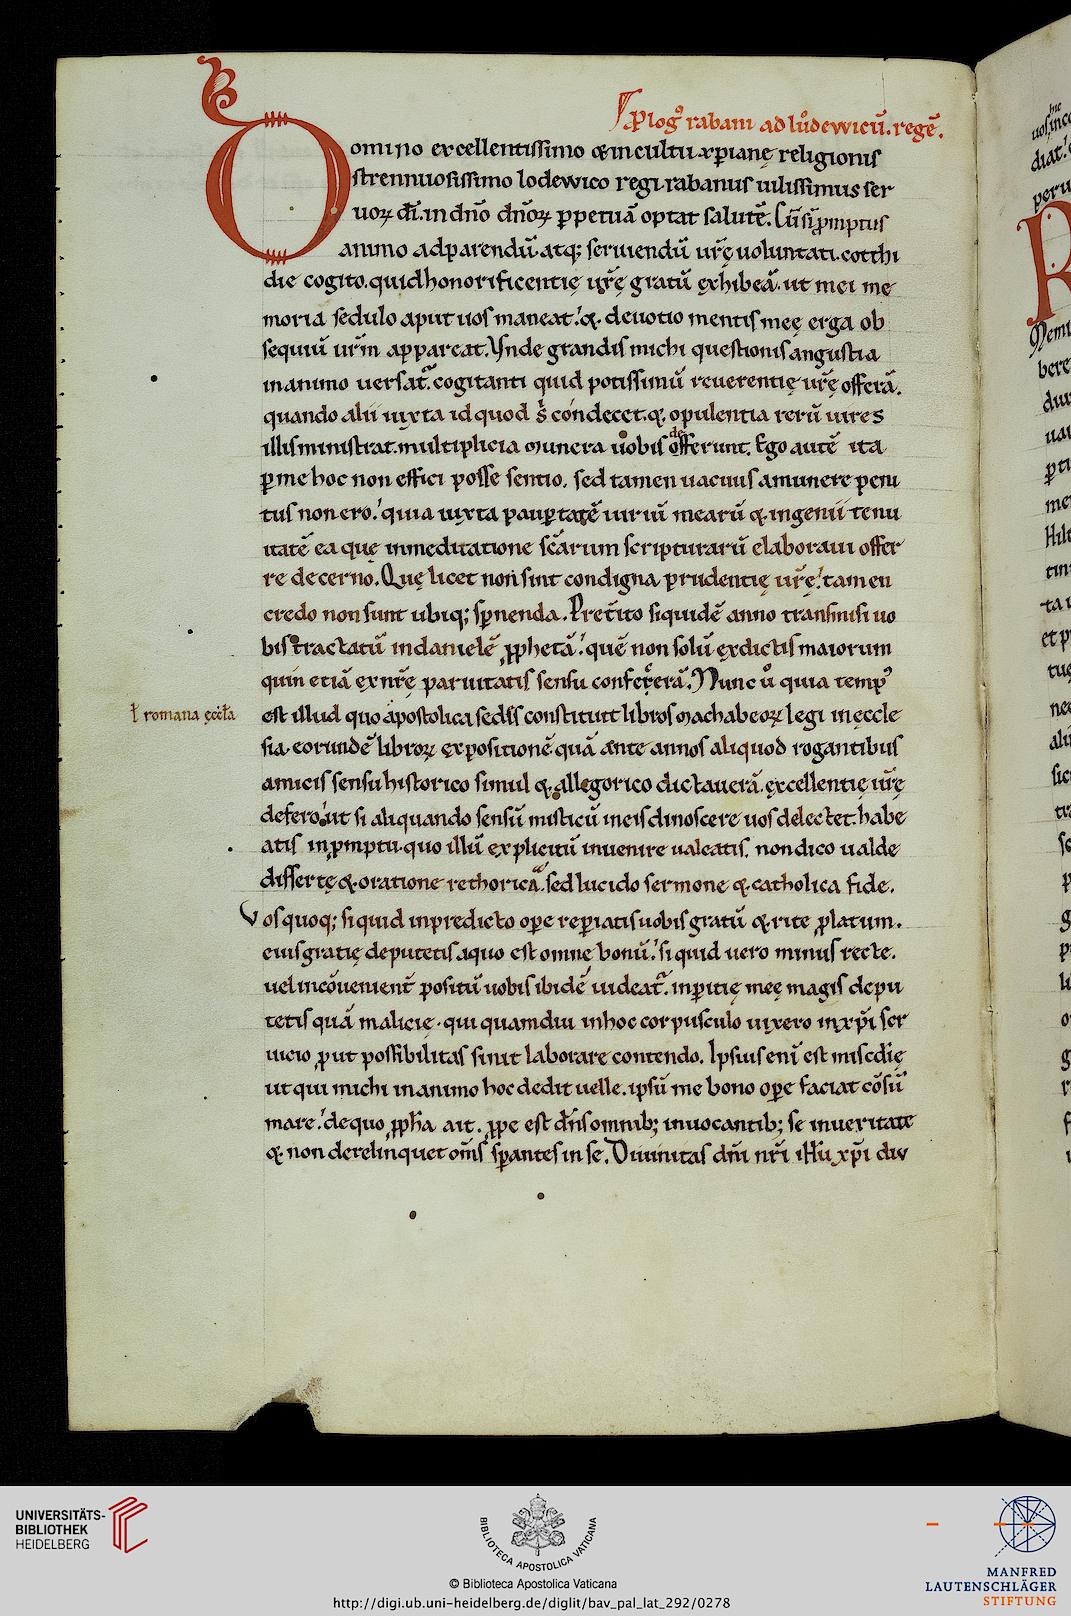 ꝓlogꝰ rabani ad luͦdewicū. regē.
Domino excellentissimo & in cultu xp̄ianę religionis
strennuosissimo lodewico regi. rabanus uilissimus ser
uoꝝ dī. in dn̄o dn̄oꝝ ꝑpetuā optat salutē. Cū sī ꝓmptus
animo ad parendū. atq; seruiendū ur̄ę uoluntati. cotthi
die cogito. quid honorificentię ur̄ę gratū exhibeā. ut mei me
moria sedulo aput uos maneat. &. deuotio mentis meę erga ob
sequiū ur̄m appareat. Vnde grandis michi questionis angustia
in animo uersat᷑. cogitanti quid potissimū reuerentię ur̄ę offerā.
quando alii iuxta id quod s̄ condecet. &. opulentia rerū uires
illis ministrat. multiplicia munera uobis offerunt. Ego autē ita
ꝑ me hoc non effici posse sentio. sed tamen uacuus a munere peni
tus non ero. quia iuxta pauꝑtatē uiriū mearū &. ingenii tenu
itatē ea quę in meditatione sc̄arum scripturarū elaboraui offer
re decerno. Quę licet non sint condigna prudentię ur̄ę. tamen
credo non sunt ubiq; sꝑnenda. Pret̄ito siquidē anno transmisi uo
bis tractatū in danielē ꝓphetā. quē non solū ex dictis maiorum
quin etiā ex nr̄ę paruitatis sensu conferērā. Nunc ů quia tempꝰ
ł romana ęcc̄ła
est illud quo apostolica sedes constituit libros machabeoꝝ legi in ęccle
sia. eorundē libroꝝ expositionē quā ante annos aliquod rogantibus
amicis sensu historico simul &. allegorico dictauerā. excellentię ur̄ę
defero. ut si aliquando sensū misticū in eis dinoscere uos delectet. habe
atis in ꝓmptu. quo illū explicitū inuenire ualeatis. non dico ualde
dissertę &. oratione rethorica. sed lucido sermone &. catholica fide.
Vos quoq; si quid in predicto oꝑe reꝑiatis uobis gratū &. rite ꝓlatum.
eius gratię deputetis a quo est omne bonū. si quid uero minus recte.
uel incōuenient̄ positū uobis ibidē uideat᷑. inꝑitię meę magis depu
tetis quā malicię. qui quamdiu in hoc corpusculo uixero in xp̄i ser
uicio ꝓut possibilitas sinit laborare contendo. Ipsius enī est mīscdię
ut qui michi in animo hoc dedit uelle. ipsū me bono oꝑe faciat cōsū
mare. de quo ꝓph̄a ait. ꝓpe est dn̄s omnib; inuocantib; se in ueritate
&. non derelinquet om̄s sꝑantes in se. Diuinitas dn̄i nr̄i ih̄u xp̄i diu
UNIVERSITÄTS-
BIBLIOTHEK
HEIDELBERG
BIBLIOTECA APOSTOLICA VATICANA
© Biblioteca Apostolica Vaticana
http://digi.ub.uni-heidelberg.de/diglit/bav_pal_lat_292/0278
MANFRED
LAUTENSCHLÄGER
STIFTUNG